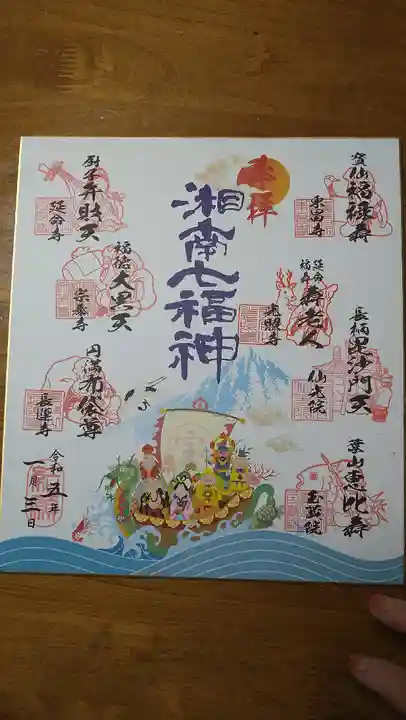 奉拝
湘南七福神
寳仙福禄寿
東昌寺
延命
福寿
寿老人
光照寺
長柄毘沙門天
仙光院
葉山恵比寿
玉蔵院
厨子弁財天
延命寺
福徳大黒天
宗泰寺
円満布袋尊
長運寺
令和五年
一月三日